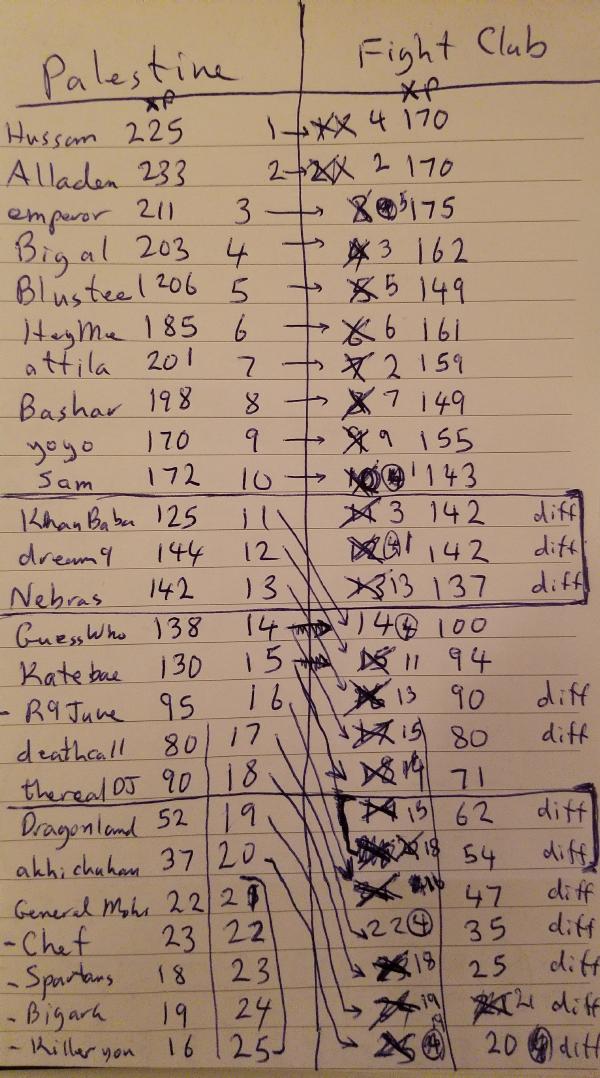 Palestine Fight Club
XP XP
Hussam 225 1 → 4 170
Alladen 233 2 → 2 170
emperor 211 3 → 5 175
Bigal 203 4 → 3 162
Blustee1 206 5 → 5 149
HeyMe 185 6 → 6 161
attila 201 7 → 2 159
Bashar 198 8 → 7 149
yoyo 170 9 → 9 155
Sam 172 10 → 1 143
KhanBaba 125 11 3 142 diff
dream9 144 12 1 142 diff
Nebras 142 13 13 137 diff
GuessWho 138 14 14 4 100
Katebae 130 15 11 94
- R9June 95 16 13 90 diff
deathcall 80 17 15 80 diff
therealDJ 90 18 14 71
Dragonland 52 19 15 62 diff
akhichuhan 37 20 18 54 diff
General Mohs 22 21 47 diff
- Chef 23 22 22 4 35 diff
- Spartans 18 23 18 25 diff
- Bigark 19 24 19 21 diff
- Killeryon 16 25 4 20 diff